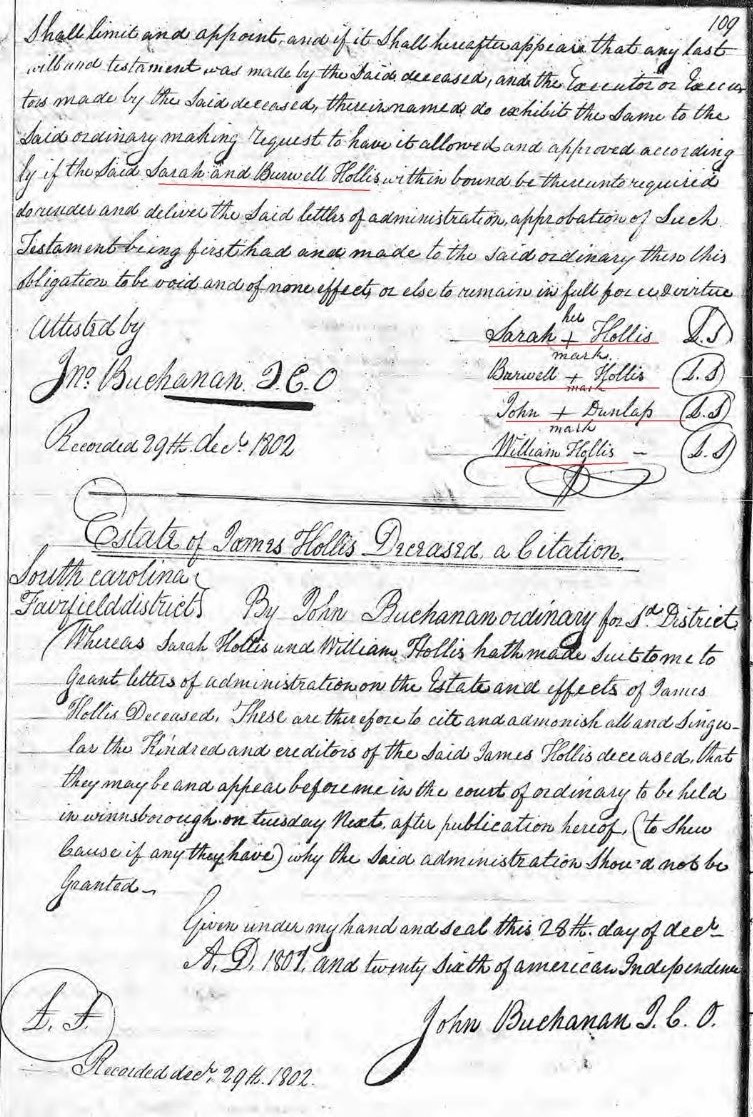 109
Shall limit and appoint, and if it Shall hereafter appear that any last
will and testament was made by the Said deceased, and the Executor or Execu
tors made by the Said deceased, therein named, do exhibit the Same to the
Said ordinary making request to have it allowed and approved according
ly if the Said Sarah and Burwell Hollis within bound be thereunto required
do render and deliver the Said letters of administration, approbation of Such
Testament being first had and made to the Said ordinary then this
obligation to be void and of none effect, or else to remain in full force & virtue
Attested by
Jno. Buchanan J. C. O
Recorded 29th. decr. 1802
her
Sarah + Hollis L.S
mark
Burwell + Hollis L.S
mark
John + Dunlap L.S
mark
William Hollis – L.S
Estate of James Hollis Deceased, a Citation.
South carolina
Fairfield district
By John Buchanan ordinary for sd. District
Whereas Sarah Hollis and William Hollis hath made Suit to me to
Grant letters of administration on the Estate and effects of James
Hollis Deceased. These are therefore to cite and admonish all and Singu-
lar the Kindred and creditors of the Said James Hollis deceased, that
they may be and appear before me in the court of ordinary to be held
in winnsborough on tuesday Next, after publication hereof, (to Shew
Cause if any they have) why the Said administration Shou'd not be
Granted –
Given under my hand and seal this 28th. day of decr–
A, D, 1801, and twenty Sixth of american Independence
L. S.
John Buchanan J. C. O.
Recorded decr. 29th. 1802.